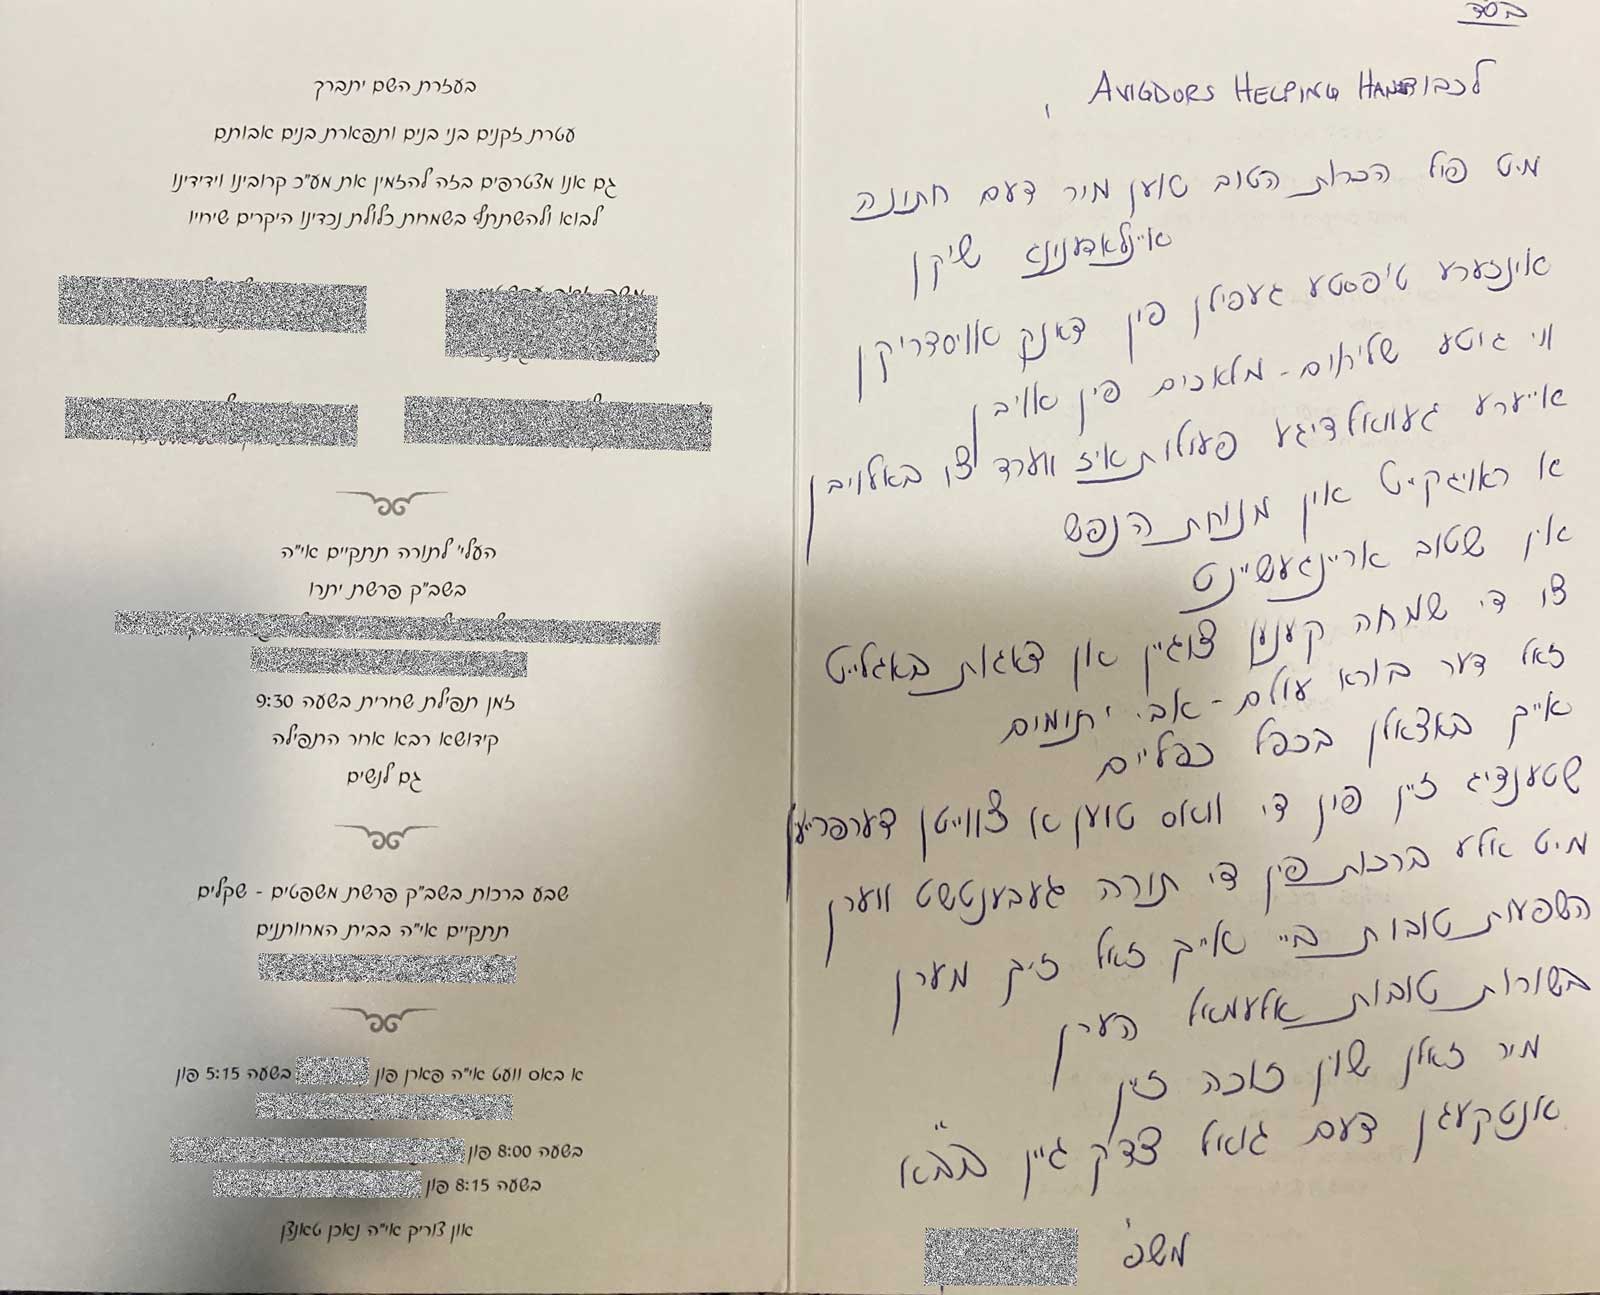 בעזרת השם יתברך
עטרת זקנים בני בנים ותפארת בנים אבותם
גם אנו מצטרפים בזה להזמין את מע"כ קרובינו וידידינו
לבוא ולהשתתף בשמחת כלולת נכדינו היקרים שיחיו
העלי' לתורה תתקיים אי"ה
בשב"ק פרשת יתרו
זמן תפילת שחרית בשעה 9:30
קידושא רבא אחר התפילה
גם לנשים
שבע ברכות בשב"ק פרשת משפטים - שקלים
תתקיים אי"ה בבית המחותנים
א באס וועט אי"ה פארן פון בשעה 5:15 פון
בשעה 8:00 פון
בשעה 8:15 פון
און צוריק אי"ה נאכן טאנצן
בסד
לכבוד AVIGDORS HELPING HAND,
מיט פיל הכרות הטוב טוען מיר דעם חתונה
איינלאדענינג שיקן
אינזערע טיפסטע געפילן פין דאנק אויסדריקן
ווי גוטע שליחים - מלאכים פין אויבן
אייערע געוואלדיגע פעולות איז ווערד צו באלויבן
א ראויגקייט אין מנוחת הנפש
אין שטוב אריינגעשיינט
צו די שמחה קענען צוגיין און דאגות באגלייט
זאל דער בורא עולם - אבי יתומים
אייך באצאלן בכפל כפליים
שטענדיג זיין פין די וואס טוען א צווייטן דערפרייען
מיט אלע ברכות פין די תורה געבענטשט ווערן
השפעות טובות ביי אייך זאל זיך מערן
בשורות טובות אלעמאל הערן
מיר זאלן שוין זוכה זיין
אנטקעגן דעם גואל צדק גיין בב"א
משפ'